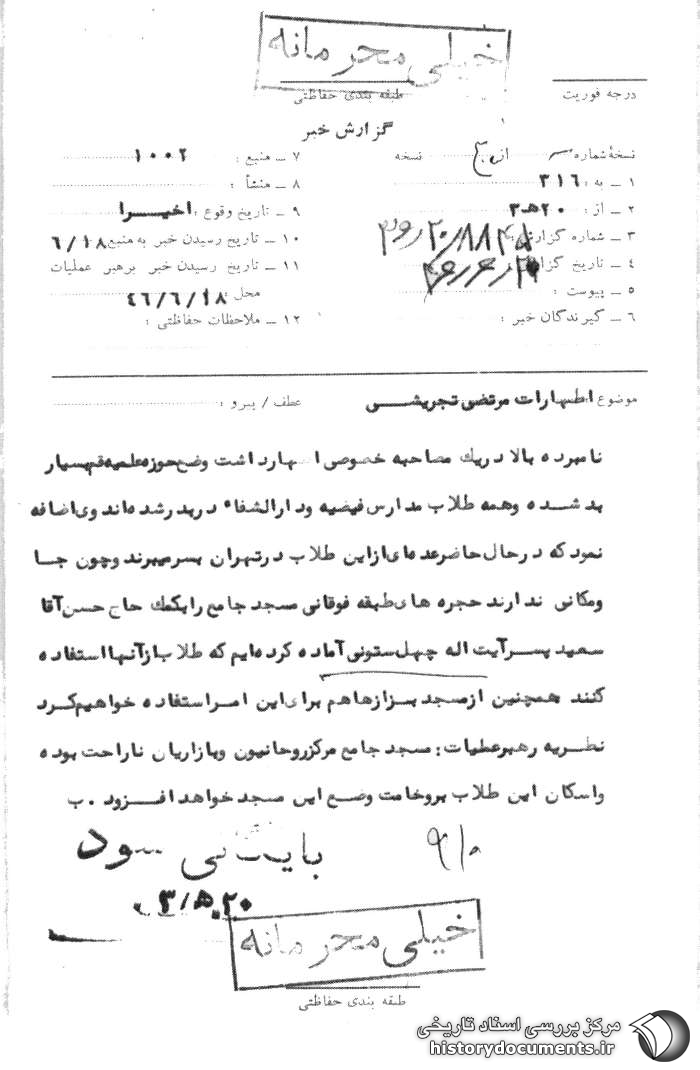 خیلی محرمانه
طبقه بندی حفاظتی
درجه فوریت
گزارش خبر
نسخهٔ شماره از نسخه
۱ ـ به : ۳۱۶
۲ ـ از : ۲۰هـ۳
۳ ـ شماره گزارش
۴ ـ تاریخ گزارش
۵ ـ پیوست :
۶ ـ گیرندگان خبر :
۷ ـ منبع : ۱۰۰۲
۸ ـ منشأ :
۹ ـ تاریخ وقوع : اخیـــرا
۱۰ ـ تاریخ رسیدن خبر به منبع ۶/۱۸
۱۱ ـ تاریخ رسیدن خبر برهبر عملیات
محل : ۴۶/۶/۱۸
۱۲ ـ ملاحظات حفاظتی :
موضوع : اظهارات مرتضی تجریشـــی
عطف / پیرو :
نامبرده بالا در یک مصاحبه خصوصی اظهار داشت وضع حوزه علمیه قم بسیار
بد شـــده و همه طلاب مدارس فیضیه و دارالشفاء دربدر شده‌اند وی اضافه
نمود که در حال حاضر عده‌ای از این طلاب در تهران بسر میبرند و چون جـا
و مکانی ندارند حجره های طبقه فوقانی مسجد جامع را بکمک حاج حسن آقا
سعید پســر آیت اله چهل ستونی آماده کرده‌ایم که طلاب از آنها استفاده
کنند همچنین از مسجد بــزازها هم برای این امــر استفاده خواهیم کــرد
نظـریه رهبر عملیات : مسجد جامع مرکز روحانیون و بازاریان ناراحت بوده
و اسکان این طلاب بر وخامت وضـع این مسجد خواهد افــزود . ب
بایگانی شود
۲۰.هـ/۳
خیلی محرمانه
طبقه بندی حفاظتی
مرکز بررسی اسناد تاریخی
historydocuments.ir